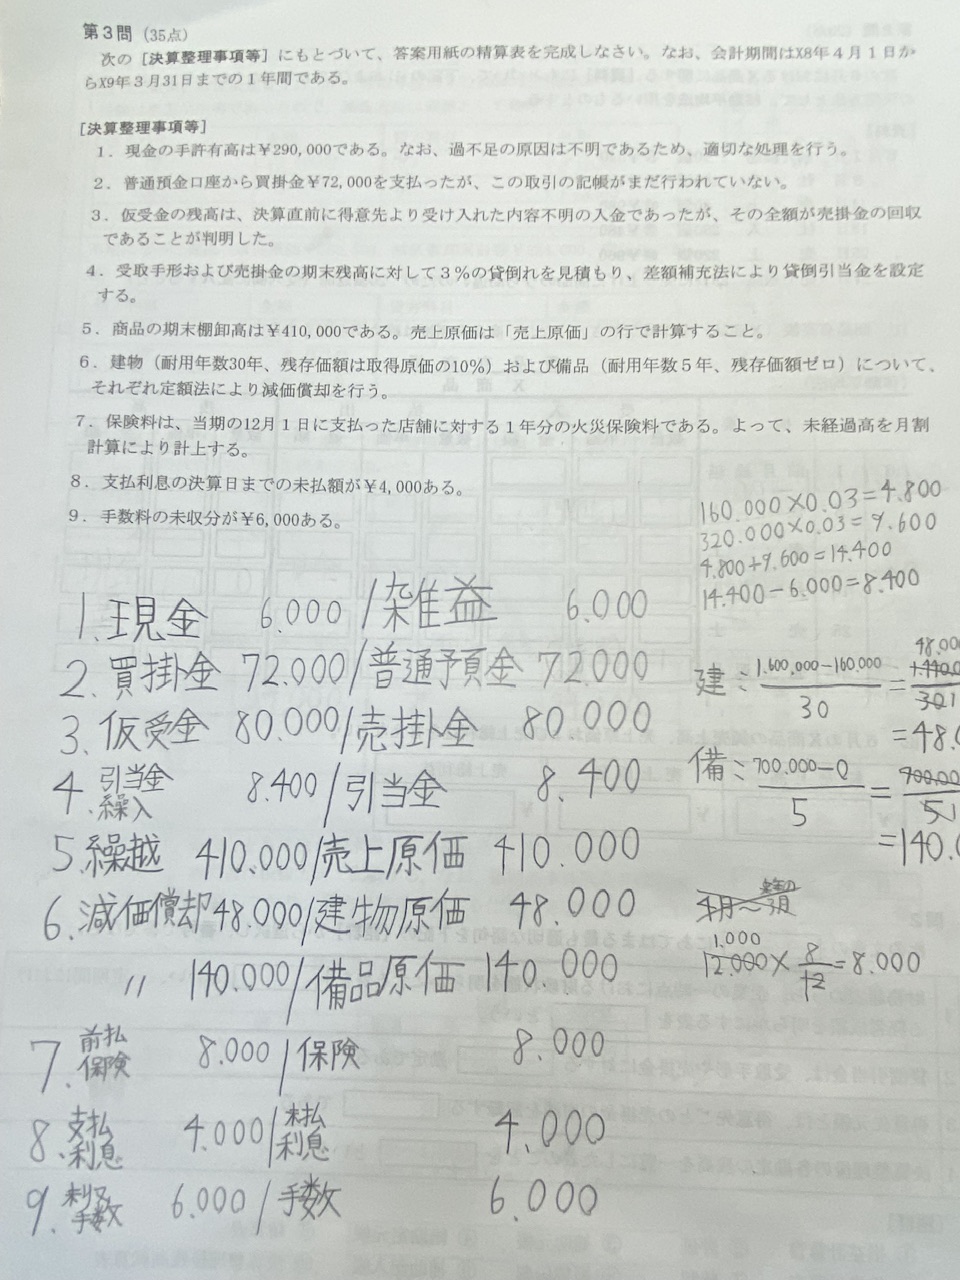 第3問 (35点)
次の [決算整理事項等] にもとづいて、答案用紙の精算表を完成しなさい。なお、会計期間はX8年4月1日か
らX9年3月31日までの1年間である。
[決算整理事項等]
1. 現金の手許有高は¥290,000である。なお、過不足の原因は不明であるため、適切な処理を行う。
2. 普通預金口座から買掛金¥72,000を支払ったが、この取引の記帳がまだ行われていない。
3. 仮受金の残高は、決算直前に得意先より受け入れた内容不明の入金であったが、その全額が売掛金の回収
であることが判明した。
4. 受取手形および売掛金の期末残高に対して3%の貸倒れを見積もり、差額補充法により貸倒引当金を設定
する。
5. 商品の期末棚卸高は¥410,000である。売上原価は「売上原価」の行で計算すること。
6. 建物(耐用年数30年、残存価額は取得原価の10%)および備品(耐用年数5年、残存価額ゼロ)について、
それぞれ定額法により減価償却を行う。
7. 保険料は、当期の12月1日に支払った店舗に対する1年分の火災保険料である。よって、未経過高を月割
計算により計上する。
8. 支払利息の決算日までの未払額が¥4,000ある。
9. 手数料の未収分が¥6,000ある。
160.000×0.03=4.800
320.000×0.03=9.600
4.800+9.600=14.400
14.400-6.000=8.400
1. 現金 6.000/雑益 6.000
2. 買掛金 72.000/普通預金 72.000
3. 仮受金 80.000/売掛金 80.000
4. 引当金繰入 8.400/引当金 8.400
5. 繰越 410.000/売上原価 410.000
6. 減価償却 48.000/建物原価 48.000
〃 140.000/備品原価 140.000
7. 前払保険 8.000/保険 8.000
8. 支払利息 4.000/未払利息 4.000
9. 未収手数 6.000/手数 6.000
建: 1.600,000-160.000
30
=
48.00
=48.0
備: 700.000-0
5
=
700.00
5
=140.0
1.000
12.000×8/12=8.000